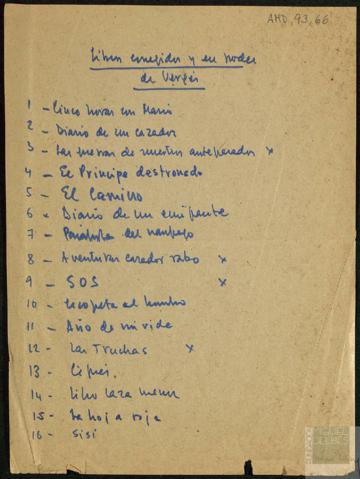 AMD, 93, 66
Libros corregidos y en poder
de Vergés
1 - Cinco horas con Mario
2 - Diario de un cazador
3 - Las guerras de nuestros antepasados x
4 - El Príncipe destronado
5 - El Camino
6 - Diario de un emigrante
7 - Parábola del náufrago
8 - Aventuras cazador rabo x
9 - SOS x
10 - Escopeta al hombro
11 - Año de mi vida
12 - Las Truchas x
13 - Ciprés
14 - Libro caza menor
15 - La hoja roja
16 - Sisí